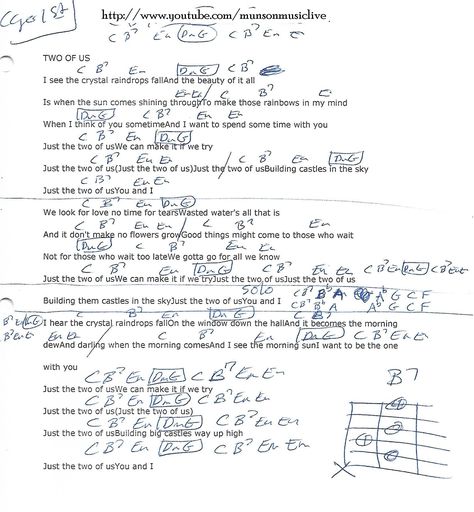 Capo 1st
http://www.youtube.com/munsonmusiclive
C B7 Em Dm G C B7 Em Em
TWO OF US
C B7 Em Dm G C B7
I see the crystal raindrops fallAnd the beauty of it all
Em Em / C B7 Em
Is when the sun comes shining throughTo make those rainbows in my mind
Dm G C B7 Em Em
When I think of you sometimeAnd I want to spend some time with you
C B7 Em Dm G
Just the two of usWe can make it if we try
C B7 Em Em / C B7 Em Dm G
Just the two of us(Just the two of us)Just the two of usBuilding castles in the sky
C B7 Em Em
Just the two of usYou and I
C B7 Em Dm G
We look for love no time for tearsWasted water's all that is
C B7 Em Em / C B7 Em
And it don't make no flowers growGood things might come to those who wait
Dm G C B7 Em Em
Not for those who wait too lateWe gotta go for all we know
C B7 Em Dm G C B7 Em Em C B7 Em Dm G C B7 Em Em
Just the two of usWe can make it if we tryJust the two of usJust the two of us
SOLO C B7 Bb A Ab G C F
Building them castles in the skyJust the two of usYou and I
C B7 Bb A Ab G C F
C B7 Em Dm G C B7
B7 Em Dm G I hear the crystal raindrops fallOn the window down the hallAnd it becomes the morning
B7 Em Em Em Em / C B7 Em Dm G C B7 Em Em
dewAnd darling when the morning comesAnd I see the morning sunI want to be the one
with you
C B7 Em Dm G C B7 Em Em
B7
Just the two of usWe can make it if we try
C B7 Em Dm G C B7 Em Em
Just the two of us(Just the two of us)
C B7 Em Dm G C B7 Em Em
Just the two of usBuilding big castles way up high
C B7 Em Dm G C B7 Em Em
Just the two of usYou and I
X